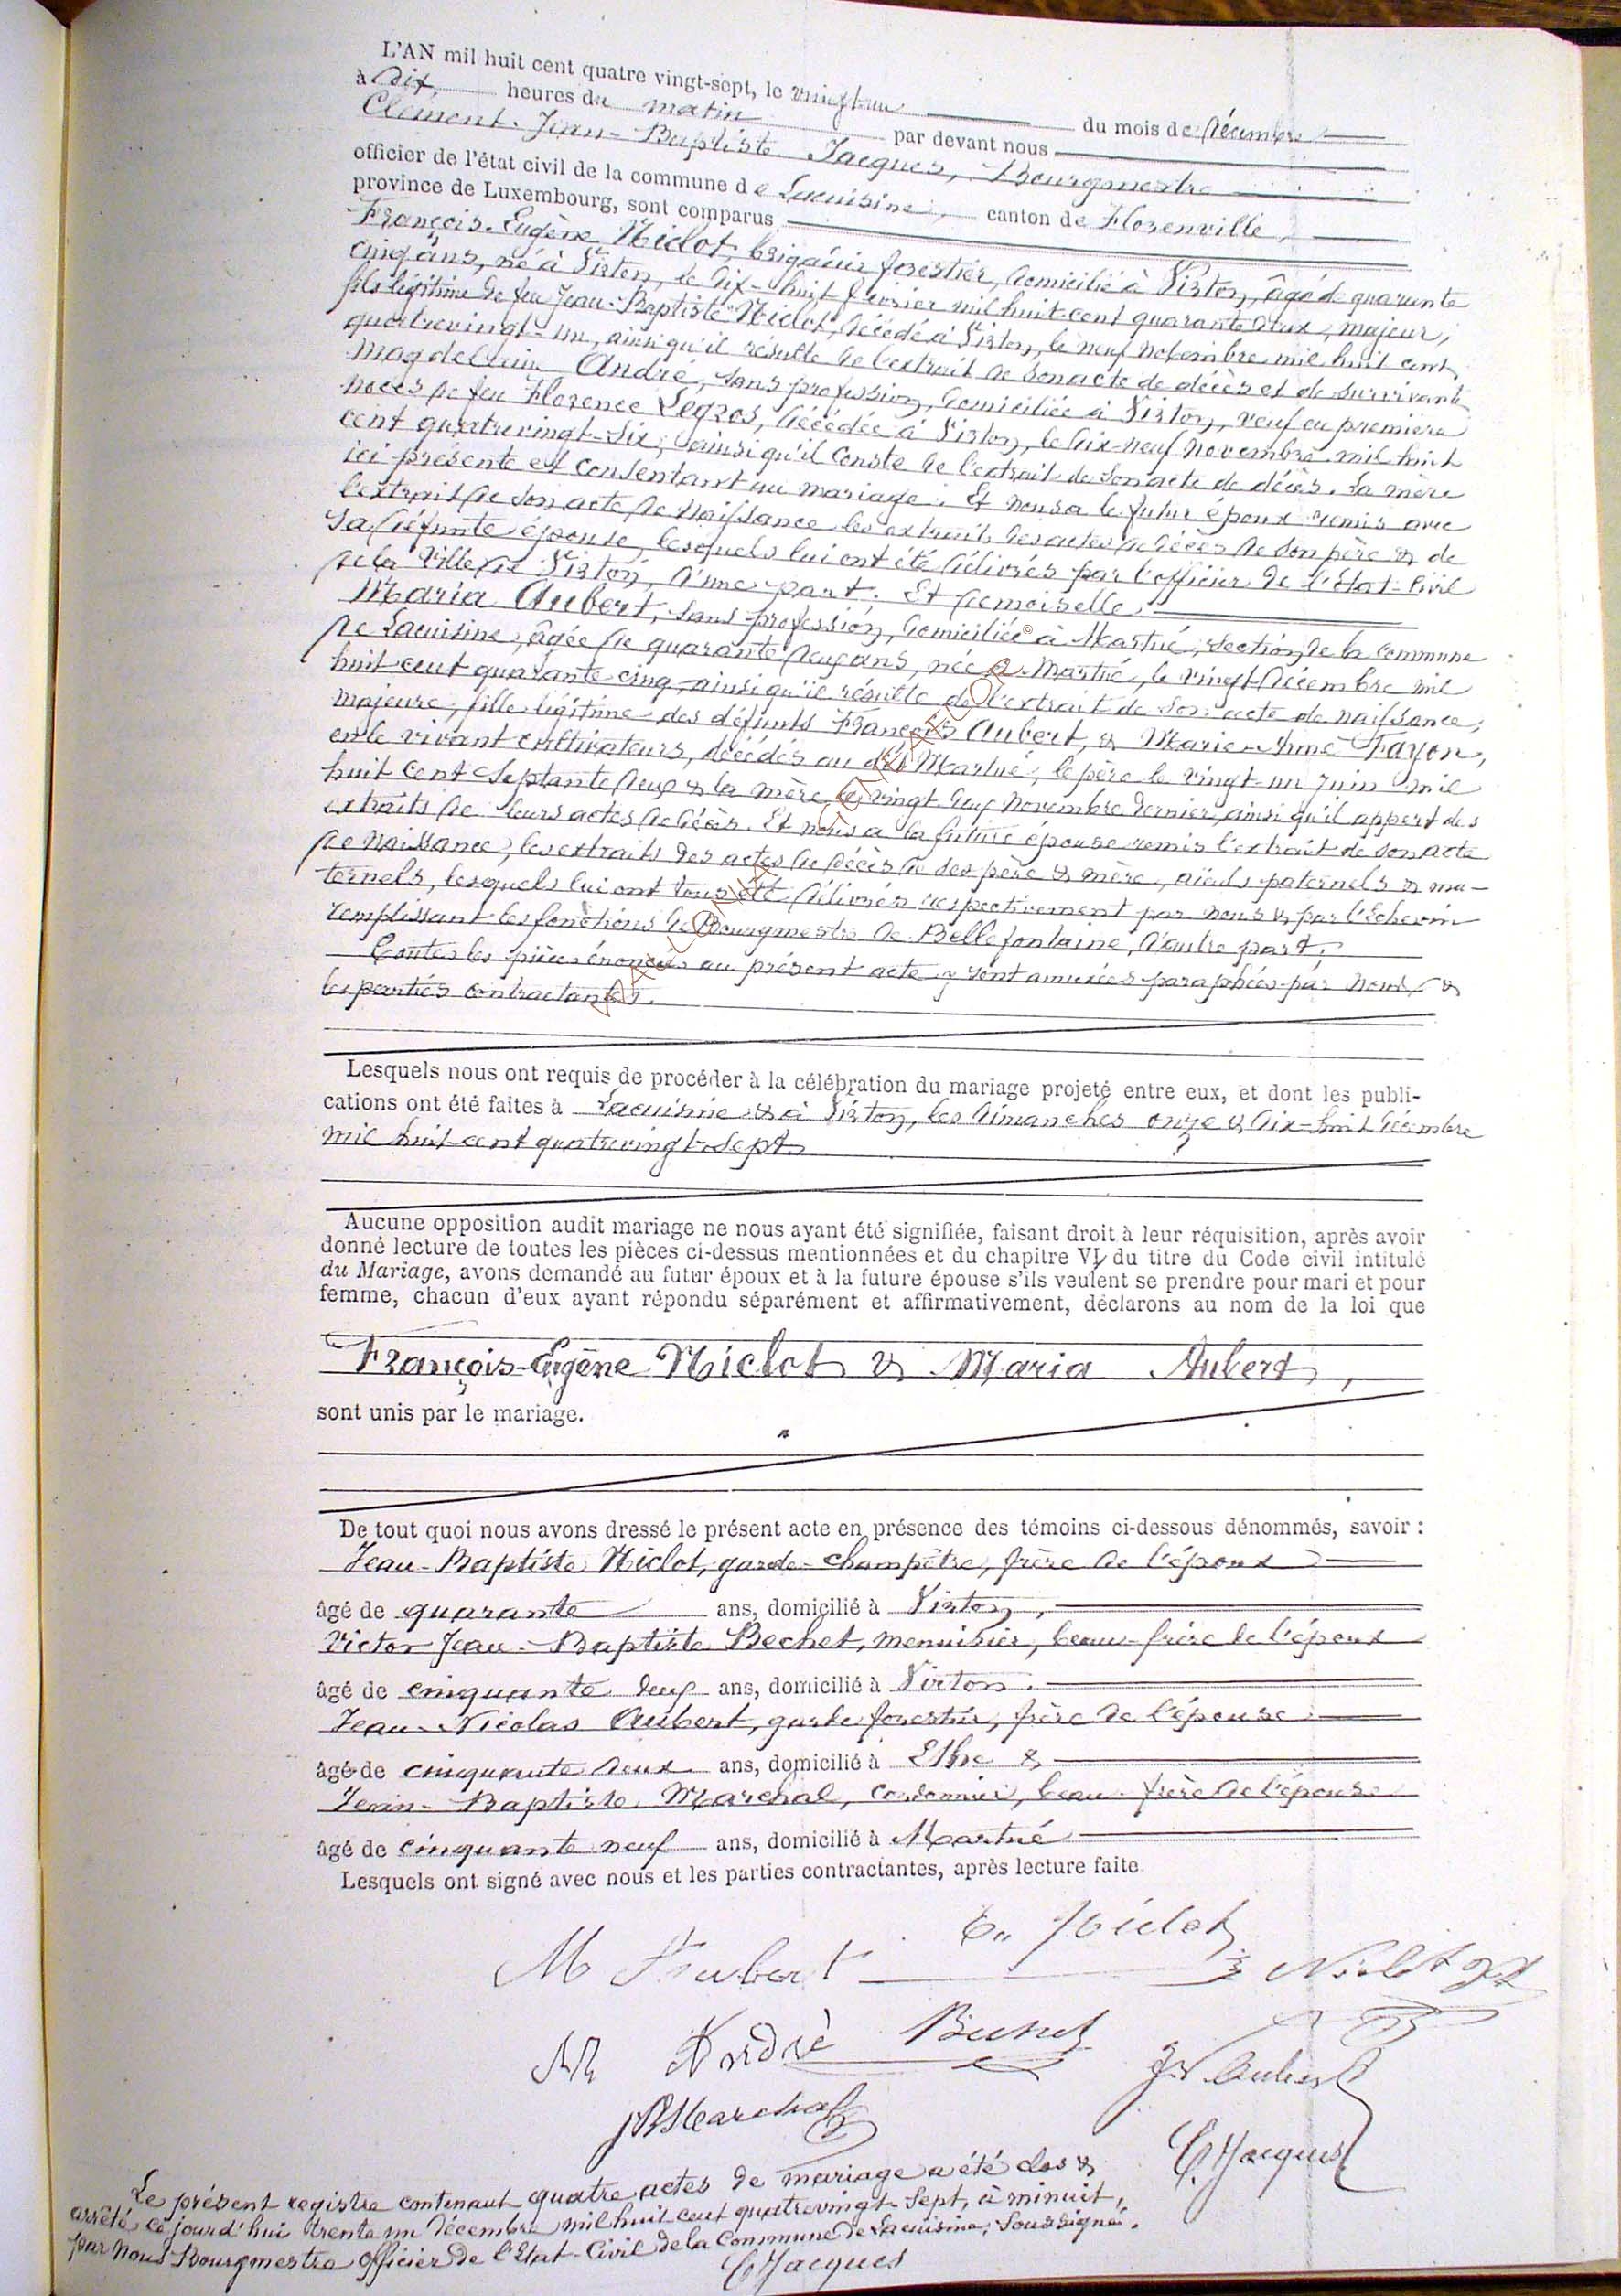 L'AN mil huit cent quatre vingt-sept, le vingt-un du mois de décembre
à dix heures du matin par devant nous
Clément-Jean-Baptiste Jacques, Bourgmestre
officier de l'état civil de la commune de Lacuisine, canton de Florenville,
province de Luxembourg, sont comparus
François-Eugène Niclot, brigadier forestier, domicilié à Virton, âgé de quarante
cinq ans, né à Virton, le dix-huit février mil huit cent quarante deux, majeur,
fils légitime de feu Jean-Baptiste Niclot, décédé à Virton, le neuf novembre mil huit cent
quatrevingt-un, ainsi qu'il résulte de l'extrait de son acte de décès et de survivante
Magdeleine André, sans profession, domiciliée à Virton, veuf en premières
noces de feu Florence Legros, décédée à Virton, le dix-neuf novembre mil huit
cent quatrevingt-six, ainsi qu'il conste de l'extrait de son acte de décès. La mère
ici présente et consentant au mariage. Et nous a le futur époux remis avec
l'extrait de son acte de naissance les extraits des actes de décès de son père & de
sa défunte épouse, lesquels lui ont été délivrés par l'officier de l'État-Civil
de la Ville de Virton, d'une part. Et demoiselle
Maria Aubert, sans profession, domiciliée à Martué, section de la commune
de Lacuisine, âgée de quarante deux ans, née à Martué, le vingt décembre mil
huit cent quarante cinq, ainsi qu'il résulte de l'extrait de son acte de naissance,
majeure, fille légitime des défunts François Aubert, & Marie-Anne Fayon,
en le vivant cultivateurs, décédés au dit Martué, le père le vingt-un juin mil
huit cent septante deux & la mère, le vingt deux novembre dernier, ainsi qu'il appert des
extraits de leurs actes de décès. Et nous a la future épouse remis l'extrait de son acte
de naissance, les extraits des actes de décès de ses père & mère, aïeuls paternels & ma-
ternels, lesquels lui ont tous été délivrés respectivement par nous & par l'Echevin
remplissant les fonctions de Bourgmestre de Bellefontaine, d'autre part.
Toutes les pièces énoncées au présent acte y sont annexées paraphées par nous &
les parties contractantes.
Lesquels nous ont requis de procéder à la célébration du mariage projeté entre eux, et dont les publi-
cations ont été faites à Lacuisine & à Virton, les dimanches onze & dix-huit décembre
mil huit cent quatrevingt-sept.
Aucune opposition audit mariage ne nous ayant été signifiée, faisant droit à leur réquisition, après avoir
donné lecture de toutes les pièces ci-dessus mentionnées et du chapitre VI du titre du Code civil intitulé
du Mariage, avons demandé au futur époux et à la future épouse s'ils veulent se prendre pour mari et pour
femme, chacun d'eux ayant répondu séparément et affirmativement, déclarons au nom de la loi que
François-Eugène Niclot & Maria Aubert,
sont unis par le mariage.
De tout quoi nous avons dressé le présent acte en présence des témoins ci-dessous dénommés, savoir :
Jean-Baptiste Niclot, garde-champêtre, frère de l'époux
âgé de quarante ans, domicilié à Virton,
Victor Jean-Baptiste Bechet, menuisier, beau-frère de l'époux
âgé de cinquante deux ans, domicilié à Virton.
Jean-Nicolas Aubert, garde forestier, frère de l'épouse
âgé de cinquante deux ans, domicilié à Ethe &
Jean-Baptiste Marchal, cordonnier, beau-frère de l'épouse
âgé de cinquante neuf ans, domicilié à Martué
Lesquels ont signé avec nous et les parties contractantes, après lecture faite.
E. Niclot
M Aubert
Niclot
M André Bechet
J N Aubert
JB Marchal
C. Jacques
Le présent registre contenant quatre actes de mariage a été clos &
arrêté ce jourd'hui trente un décembre mil huit cent quatrevingt-sept, à minuit,
par nous Bourgmestre officier de l'Etat-Civil de la Commune de Lacuisine, soussigné.
C Jacques